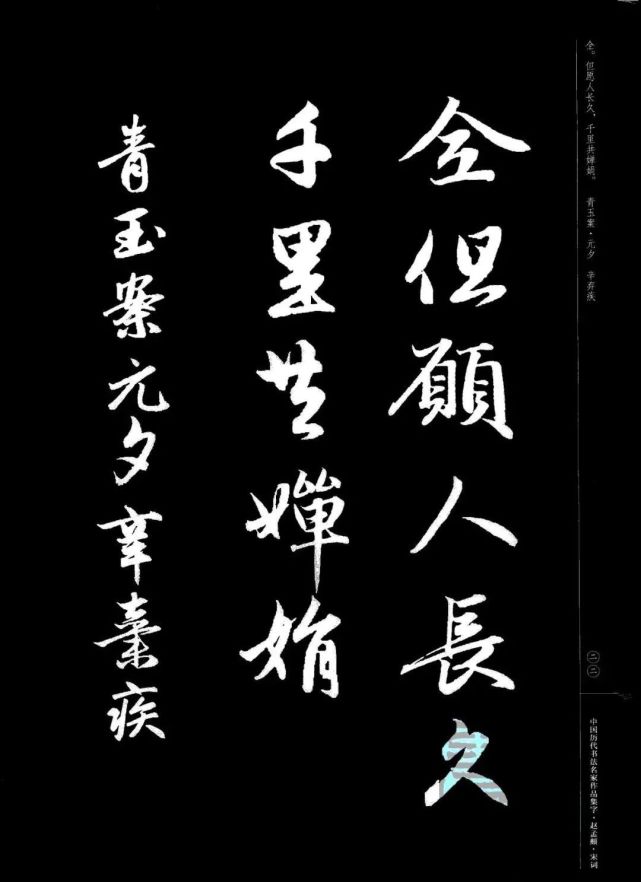 全但願人長久
千里共嬋娟
青玉案元夕辛棄疾
全。但愿人长久，千里共婵娟。　青玉案·元夕　辛弃疾
二二
中国历代书法名家作品集字·赵孟頫·宋词